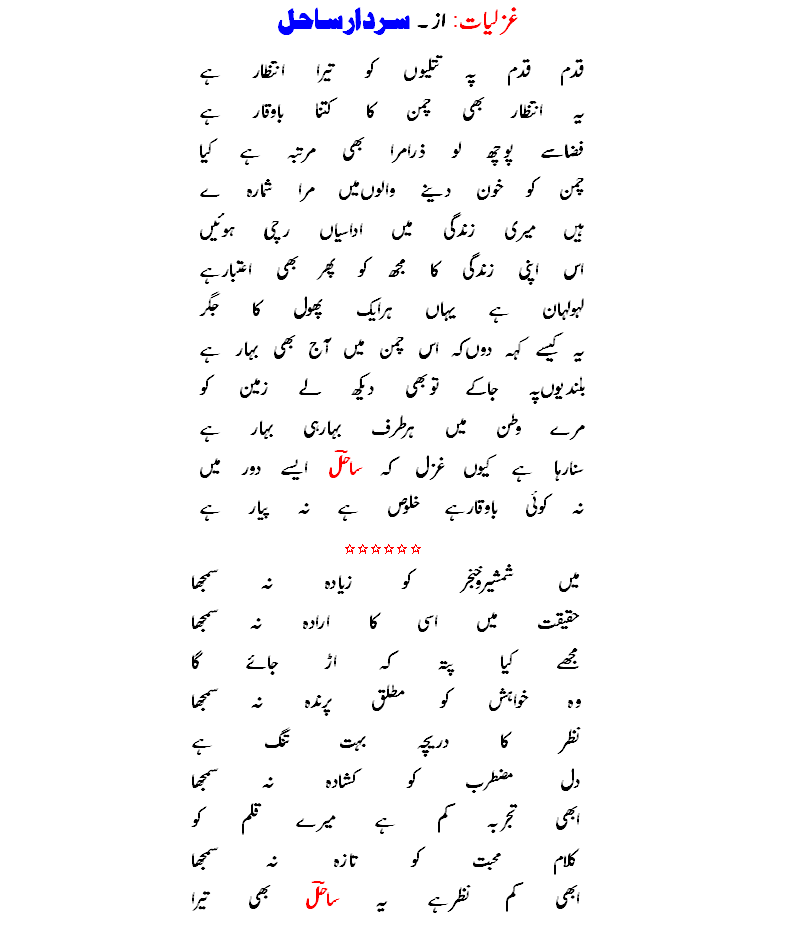 غزلیات: از ۔ سردار ساحل
قدم قدم پہ تتلیوں کو تیرا انتظار ہے
یہ انتظار بھی چمن کا کتنا باوقار ہے
فضا سے پوچھ لو ذرا مرا بھی مرتبہ ہے کیا
چمن کو خون دینے والوں میں مرا شمارہ ے
ہیں میری زندگی میں اداسیاں رچی ہوئیں
اس اپنی زندگی کا مجھ کو پھر بھی اعتبار ہے
لہولہان ہے یہاں ہر ایک پھول کا جگر
یہ کیسے کہہ دوں کہ اس چمن میں آج بھی بہار ہے
بلندیوں پہ جا کے تو بھی دیکھ لے زمین کو
مرے وطن میں ہر طرف بہار ہی بہار ہے
سنا رہا ہے کیوں غزل کہ ساحلؔ ایسے دور میں
نہ کوئی باوقار ہے خلوص ہے نہ پیار ہے
☆☆☆☆☆☆
میں شمشیر و خنجر کو زیادہ نہ سمجھا
حقیقت میں اسی کا ارادہ نہ سمجھا
مجھے کیا پتہ کہ اڑ جائے گا
وہ خواہش کو مطلق پرندہ نہ سمجھا
نظر کا دریچہ بہت تنگ ہے
دل مضطرب کو کشادہ نہ سمجھا
ابھی تجربہ کم ہے میرے قلم کو
کلام محبت کو تازہ نہ سمجھا
ابھی کم نظر ہے یہ ساحلؔ بھی تیرا